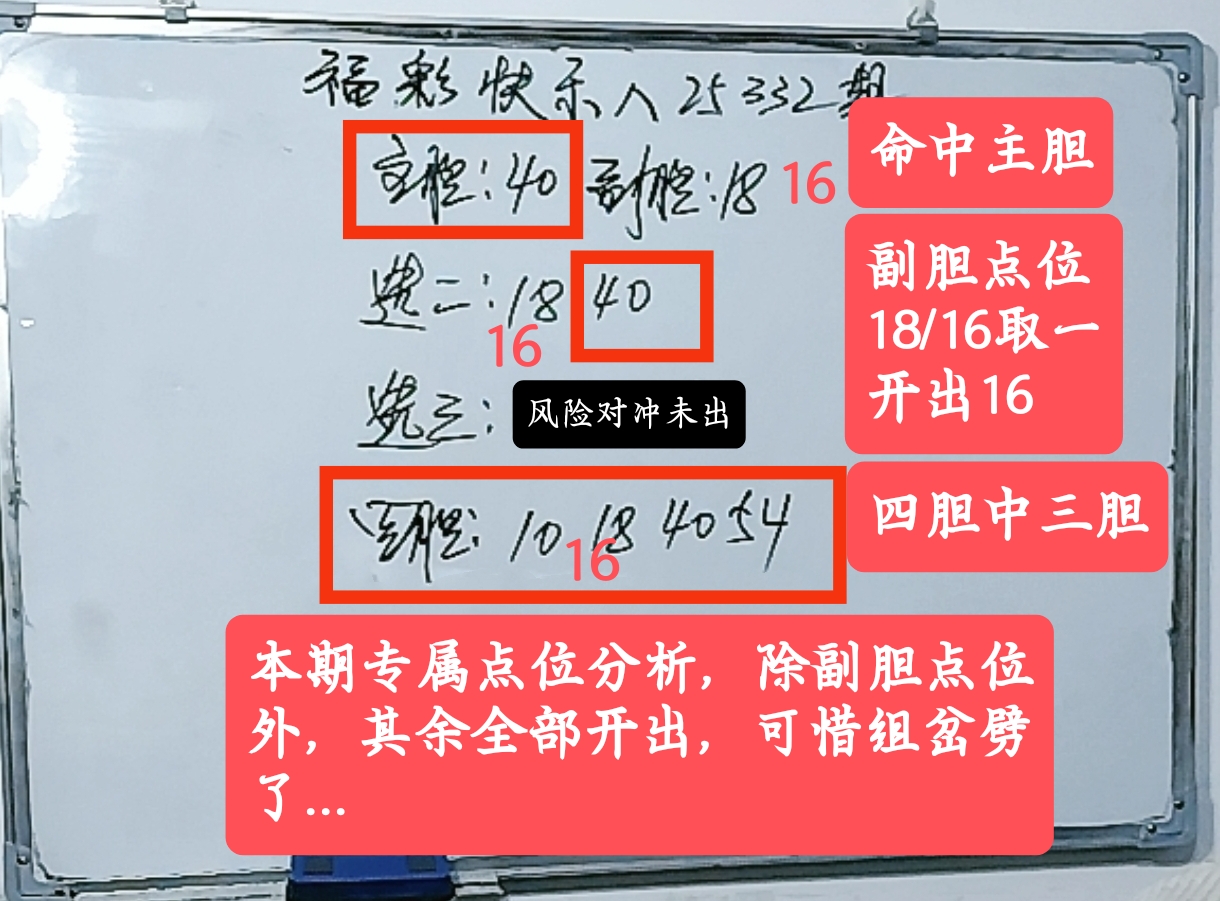 福彩快乐八25332期
主胆:40 副胆:18 16
命中主胆
选二:18 40
16
副胆点位
18/16取一
开出16
选三:
风险对冲未出
四胆中三胆
胆: 10 18 40 54
16
本期专属点位分析，除副胆点位
外，其余全部开出，可惜组岔劈
了...